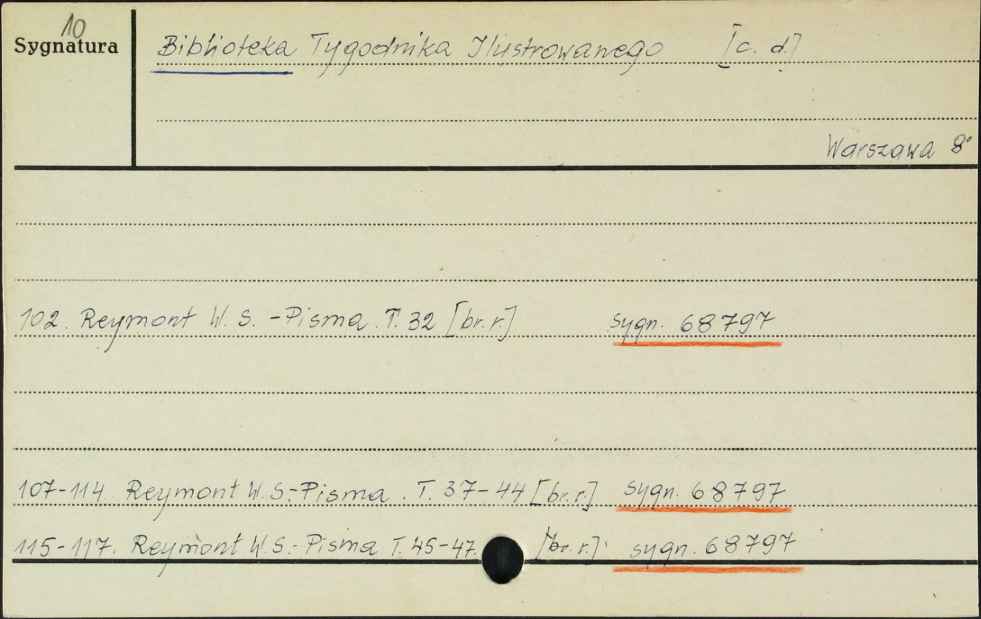 10
Sygnatura
Biblioteka Tygodnika Ilustrowanego [c. d.]
Warszawa 8°
102. Reymont W. S. - Pisma. T. 32 [br. r.] sygn. 68797
107-114. Reymont W. S. - Pisma. T. 37-44 [br. r.] sygn. 68797
115-117. Reymont W. S. - Pisma T. 45-47. [br. r.] sygn. 68797